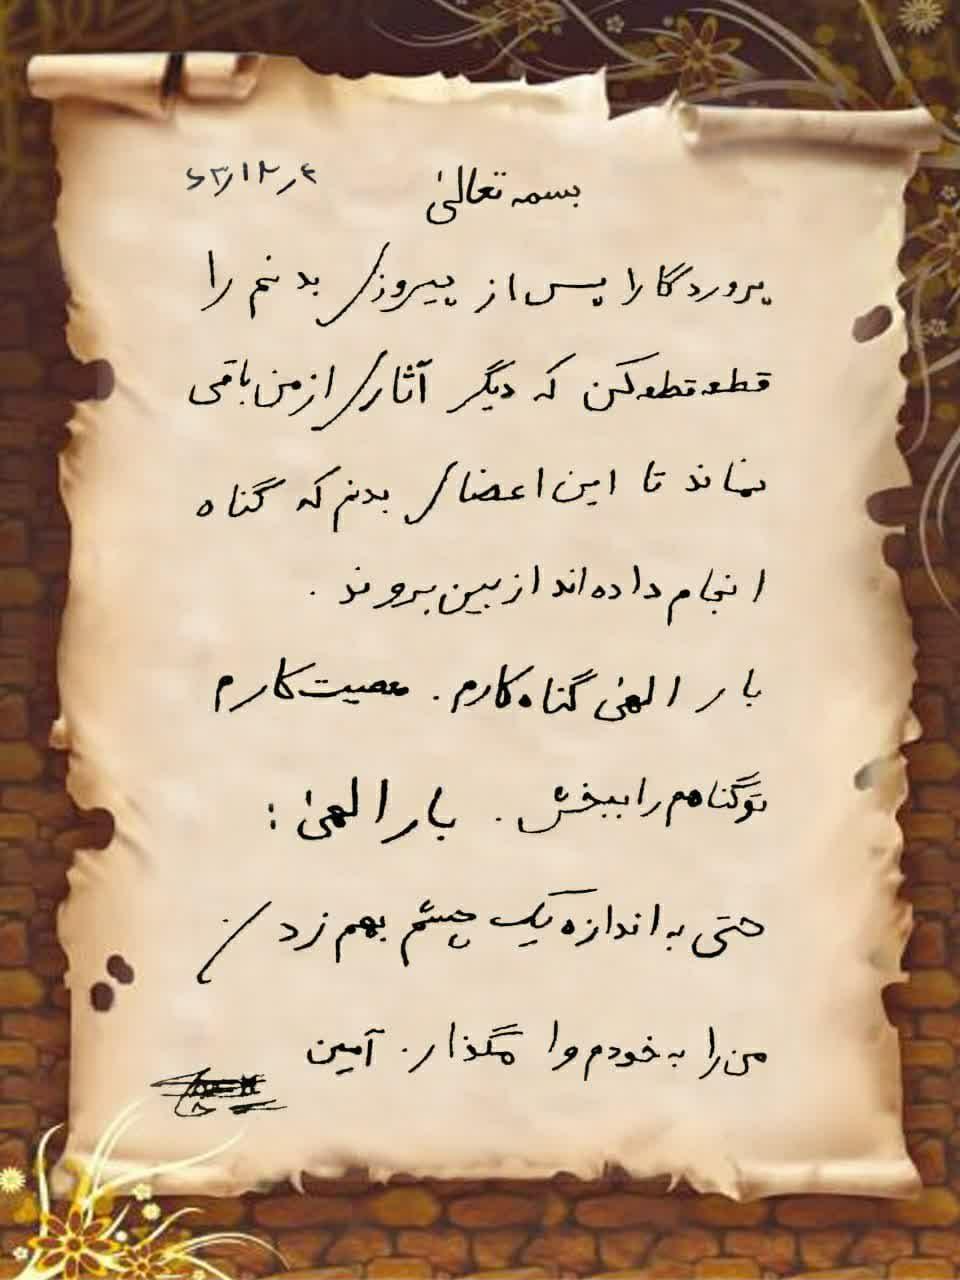 بسمه تعالیٰ
۶۳/۱۲/۴
پروردگارا پس از پیروزی بدنم را
قطعه قطعه کن که دیگر آثاری از من باقی
نماند تا این اعضای بدنم که گناه
انجام داده اند از بین بروند .
بار الهیٰ گناه کارم . معصیت کارم
تو گناهم را ببخش . بار الهیٰ :
حتی به اندازه یک چشم بهم زدن
من را به خودم وا مگذار . آمین